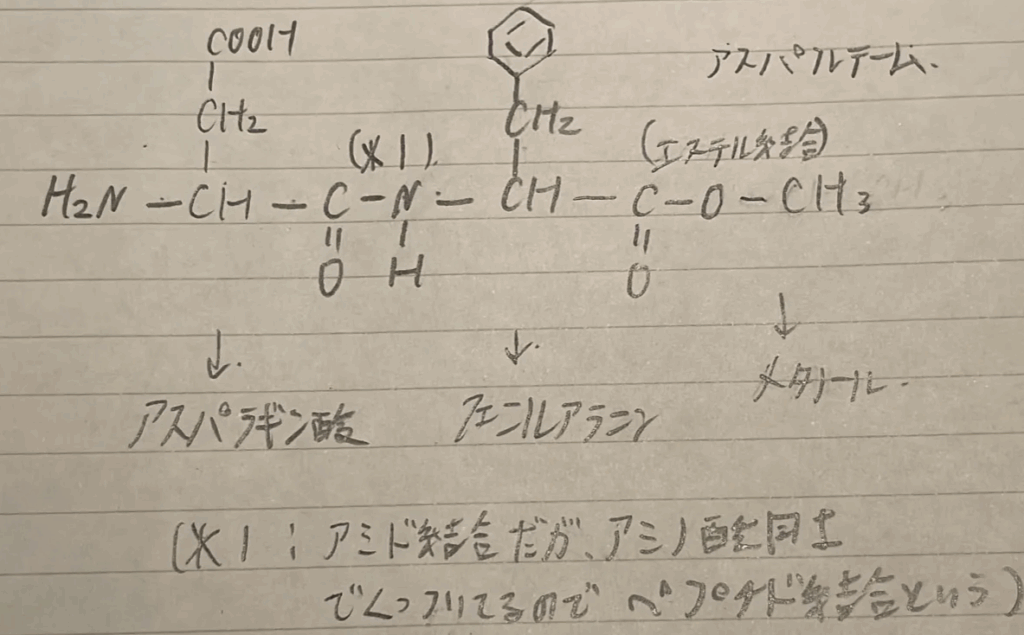 COOH
アスパルテーム.
CH2
CH2
(※1)
(エステル結合)
H2N-CH-C-N-CH-C-O-CH3
O H O
↓ ↓ ↓
メタノール.
アスパラギン酸 フェニルアラニン
(※1:アミド結合だが、アミノ酸同士
でくっついてるので ペプチド結合という)